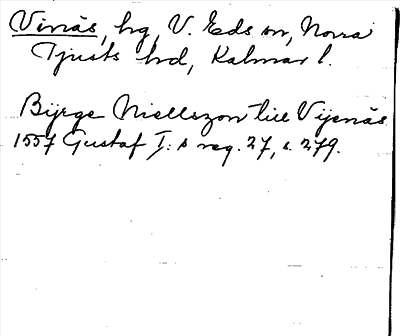 Vinäs, hg, V. Eds sn, Norra
Tjusts hd, Kalmar l.
Bÿrge Niellszon till Vijenäs
1557 Gustaf I:s reg. 27, s. 279.